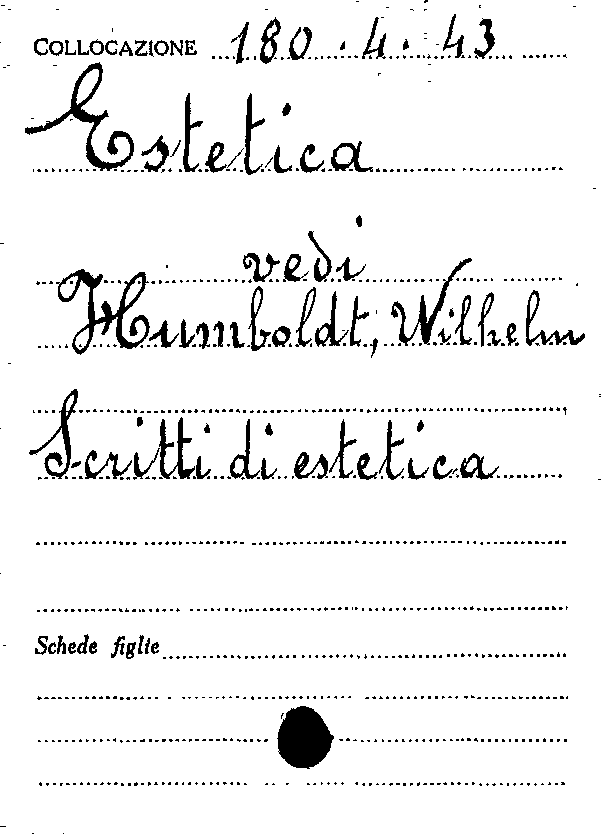 COLLOCAZIONE 180.4.43
Estetica
vedi
Humboldt, Wilhelm
Scritti di estetica
Schede figlie